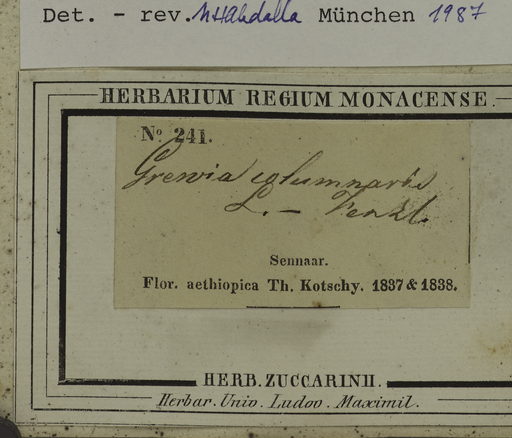 Det. - rev. MHAbdalla München 1987
HERBARIUM REGIUM MONACENSE.
No 241.
Grewia columnaris
L. - Fenzl.
Sennaar.
Flor. aethiopica Th. Kotschy. 1837 & 1838.
HERB. ZUCCARINII.
Herbar. Univ. Ludov. Maximil.